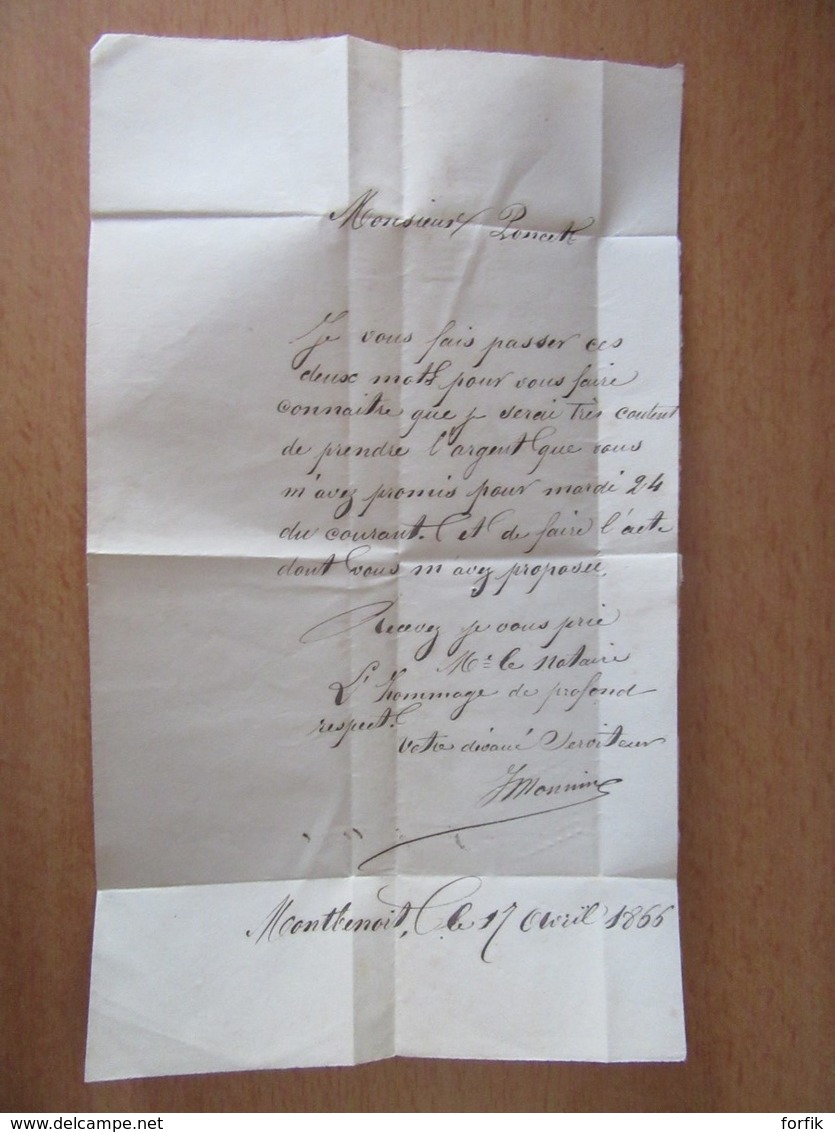 Monsieur Poncet
Je vous fais passer ces
deux mots pour vous faire
connaitre que je serai très content
de prendre l'argent que vous
m'avez promis pour mardi 24
du courant. et de faire l'acte
dont vous m'avez proposée
Recevez je vous prie
Mr le notaire
L'hommage de profond
respect.
Votre dévoué Serviteur
JMonnin
Montbenoit, le 17 Avril 1866
delcampe.net
forfik